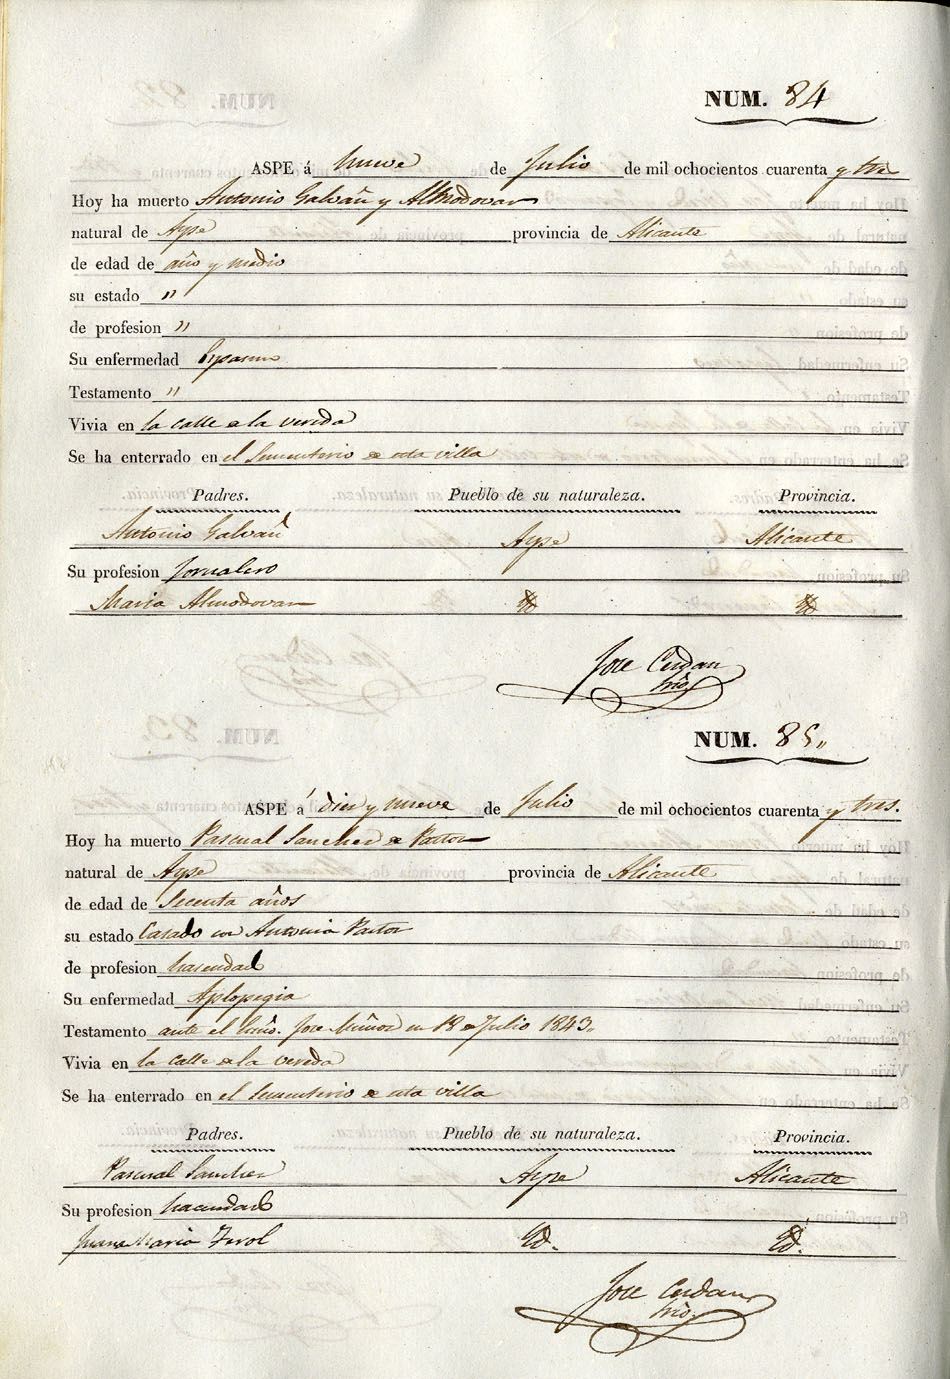 NUM. 84
ASPE á nueve de Julio de mil ochocientos cuarenta y tres
Hoy ha muerto Antonio Galvañ y Almodovar
natural de Aspe provincia de Alicante
de edad de año y medio
su estado "
de profesion "
Su enfermedad Espasmo
Testamento "
Vivia en la calle de la vereda
Se ha enterrado en el Sementerio de esta villa
Padres. Pueblo de su naturaleza. Provincia.
Antonio Galvañ Aspe Alicante
Su profesion Jornalero
Maria Almodovar Id Id
Jose Cerdan
Srio
NUM. 85"
ASPE á diez y nueve de Julio de mil ochocientos cuarenta y tres.
Hoy ha muerto Pascual Sanchez de Pastor
natural de Aspe provincia de Alicante
de edad de Secenta años
su estado Casado con Antonia Pastor
de profesion hasendado
Su enfermedad Aplopegia
Testamento ante el Esño. Jose Muñoz en 18 de Julio 1843.
Vivia en la calle de la vereda
Se ha enterrado en el Sementerio de esta villa
Padres. Pueblo de su naturaleza. Provincia.
Pascual Sanchez Aspe Alicante
Su profesion hacendado
Juana Maria Terol Id. Id.
Jose Cerdan
Srio